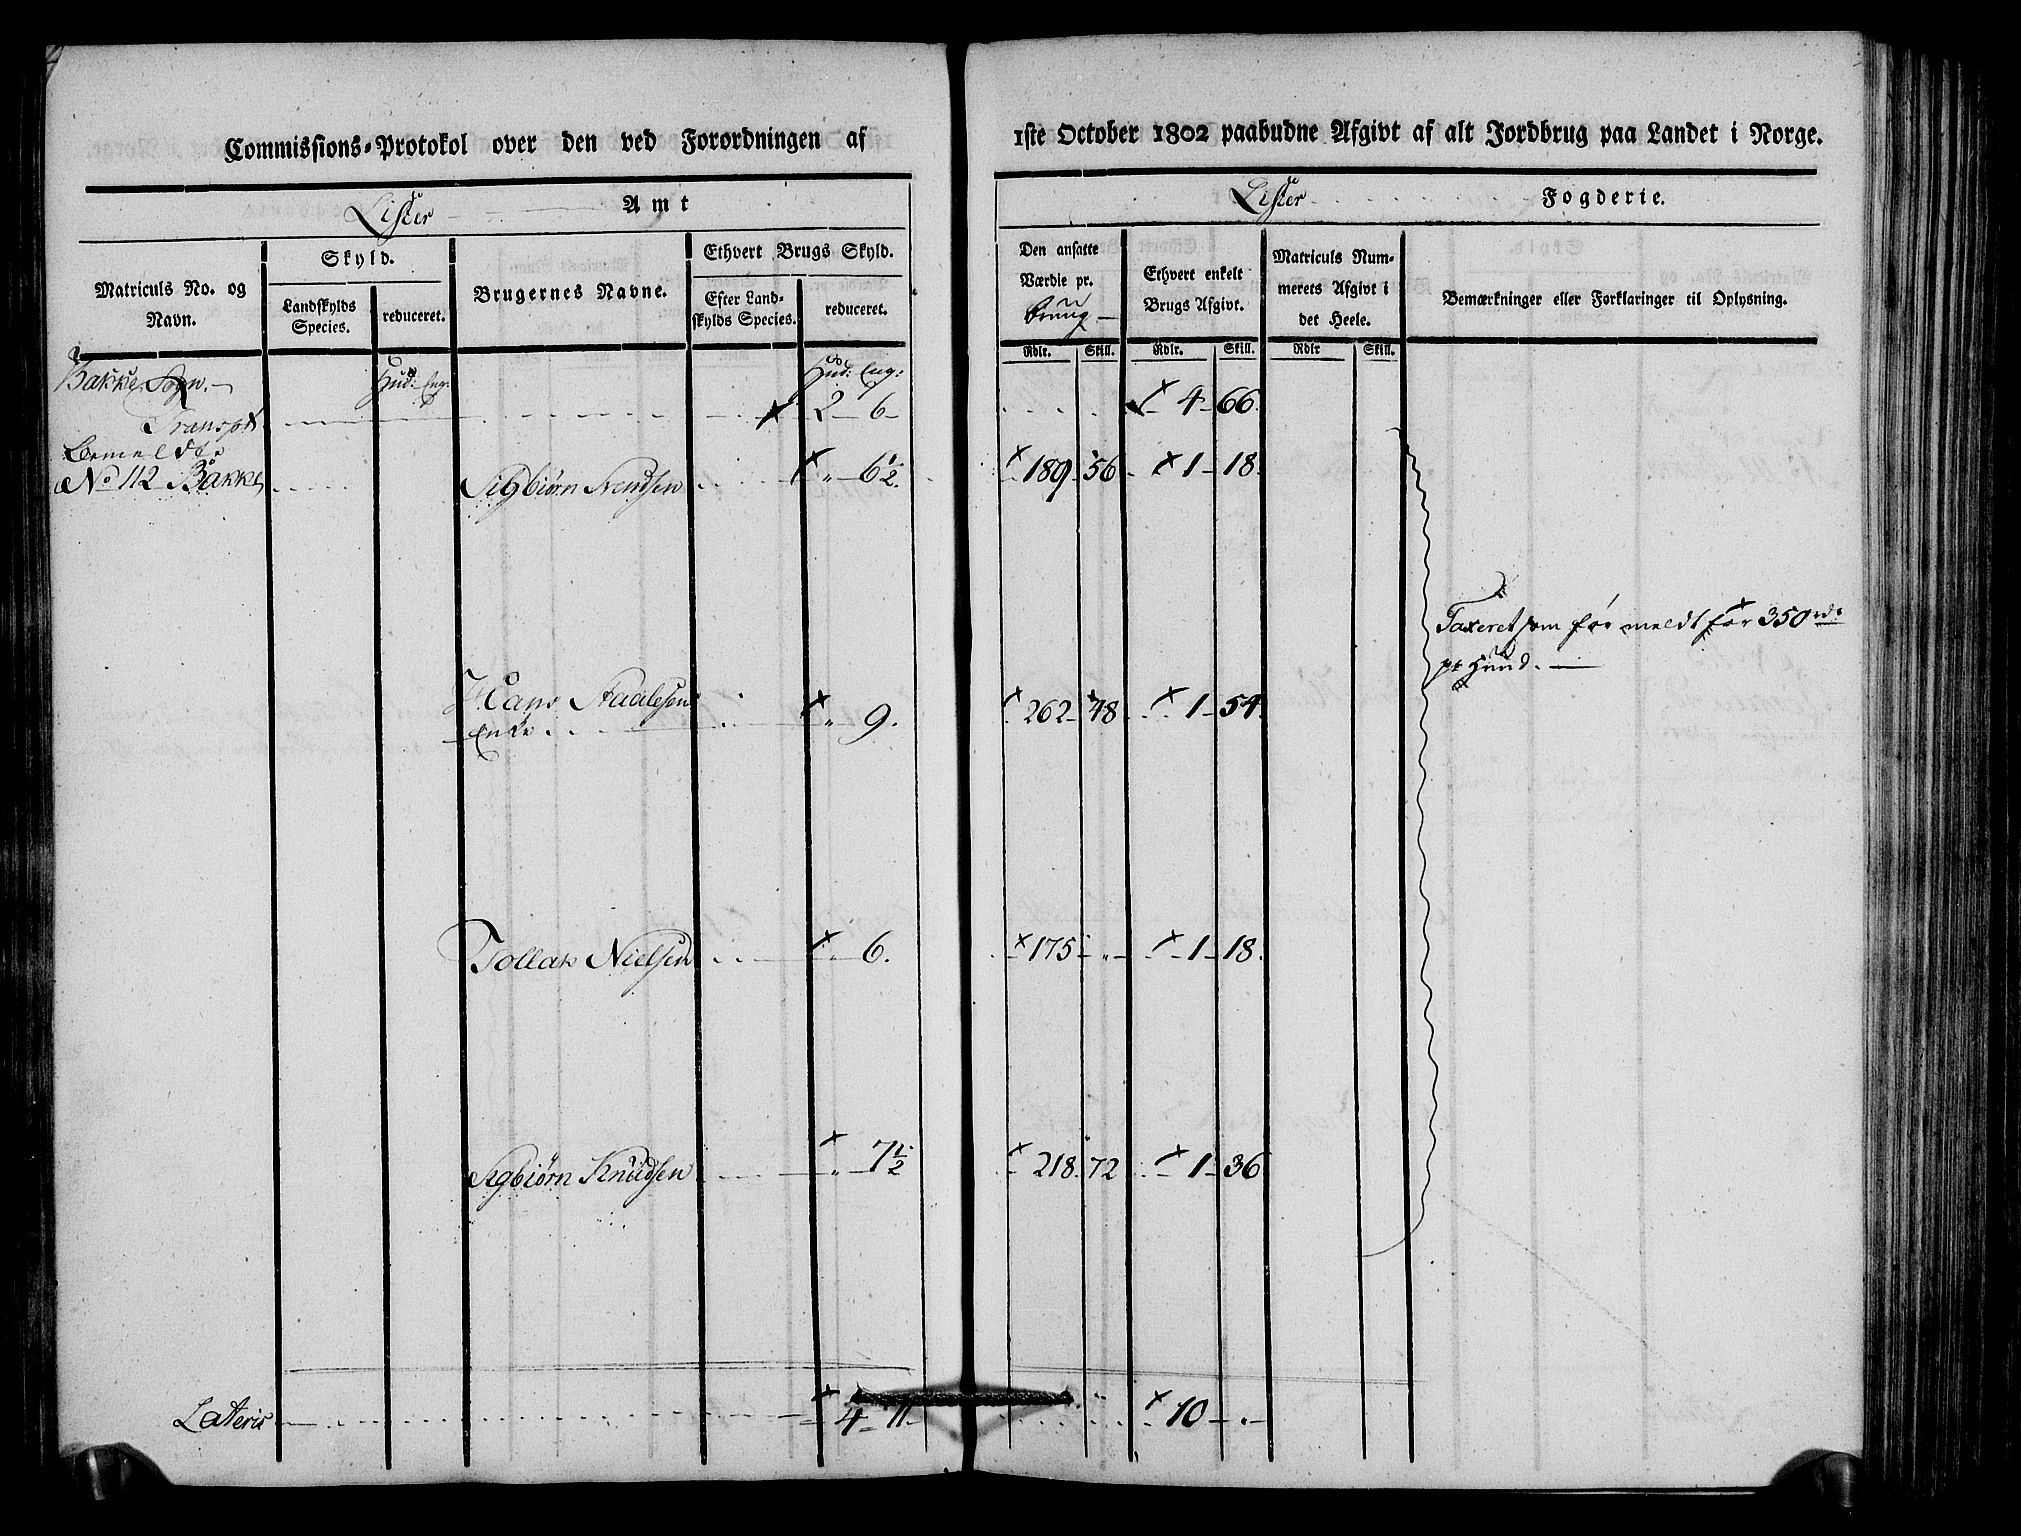 Commissions-Protokol over den ved Forordningen af
1ste October 1802 paabudne Afgivt af alt Jordbrug paa Landet i Norge.
Lister Amt
Lister Fogderie.
Matriculs No. og Navn.
Skyld.
Landskylds Species.
reduceret.
Brugernes Navne.
Ethvert Brugs Skyld.
Efter Landskylds Species.
reduceret.
Den ansatte Værdie pr.
Rdlr. Skill.
Ethvert enkelt Brugs Afgivt.
Rdlr. Skill.
Matriculs Nummerets Afgivt i det Heele.
Rdlr Skill.
Bemærkninger eller Forklaringer til Oplysning.
Bakke Sogn.
Hud: Eng:
Hud: Eng:
Transpt 2 6 4 66.
No 112 Bakke Sigbiørn Svendsen " 6½. 189 56 1 18.
Taxeret som før meldt for 350 rd
pr Hud.
Hans Staalesen
Enke " 9. 262 48 1 54.
Tollak Nielsen " 6. 175 " 1 18.
Sigbiørn Knudsen " 7½ 218 72 1 36
Lateris 4 11. 10 "